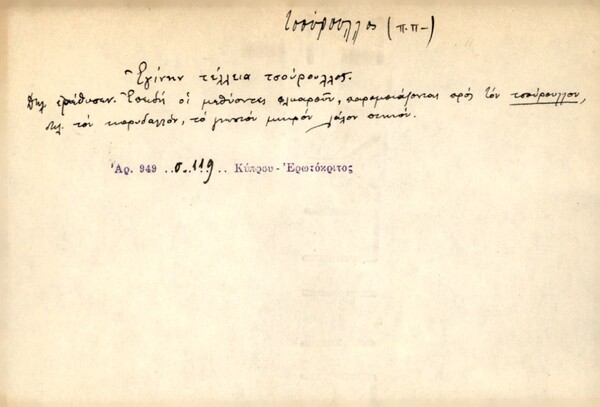 τσούρουλλος (π.π-)
Ἐγίνην τέλλεια τσούρουλλος.
Δηλ. ἐμέθυσεν. Ἐπειδή οἱ μεθύοντες παρομοιάζονται πρός τόν τσούρουλλον,
δηλ. τόν κορυδαλλόν, τό γνωστόν μικρόν
Ἀρ. 949 ..σ.119.. Κύπρου-Ἐρωτόκριτος